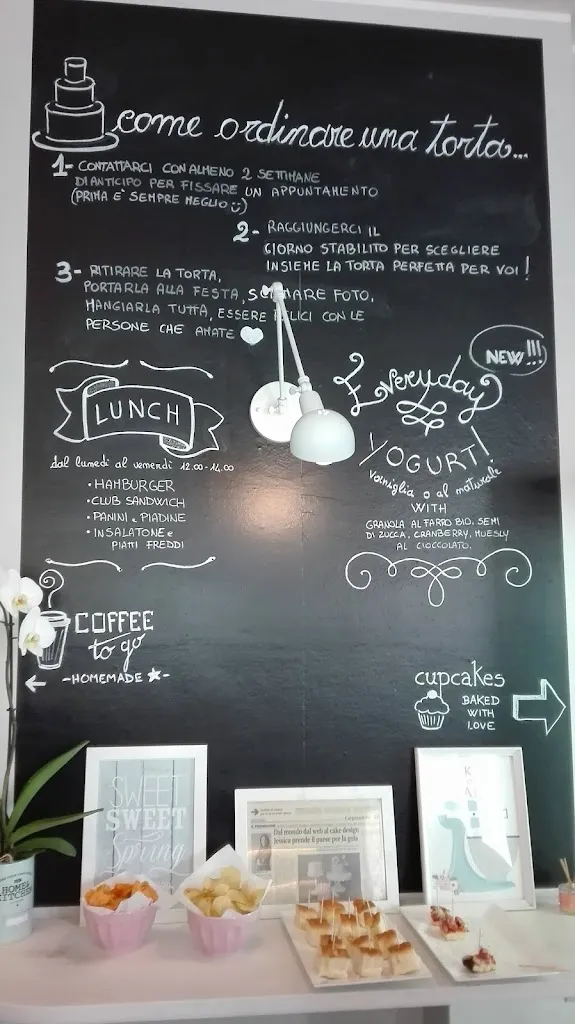 come ordinare una torta...
1- CONTATTARCI CON ALMENO 2 SETTIMANE
DI ANTICIPO PER FISSARE UN APPUNTAMENTO
(PRIMA E' SEMPRE MEGLIO :))
2- RAGGIUNGERCI IL
GIORNO STABILITO PER SCEGLIERE
INSIEME LA TORTA PERFETTA PER VOI!
3- RITIRARE LA TORTA,
PORTARLA ALLA FESTA, SC MARE FOTO,
MANGIARLA TUTTA, ESSERE LICI CON LE
PERSONE CHE AMATE
LUNCH
dal lunedì al venerdì 12.00-14.00
• HAMBURGER
• CLUB SANDWICH
• PANINI e PIADINE
• INSALATONE e
PIATTI FREDDI
COFFEE
to go
-HOMEMADE ★-
NEW!!!
Everyday
YOGURT!
vaniglia o al naturale
WITH
GRANOLA AL FARRO BIO, SEMI
DI ZUCCA, CRANBERRY, MUESLY
AL CIOCCOLATO.
cupcakes
BAKED
WITH
LOVE
SWEET
SWEET
Spring
Dal mondo del web al cake design
Jessica prende il paese per la gola
HOME
KITCHEN